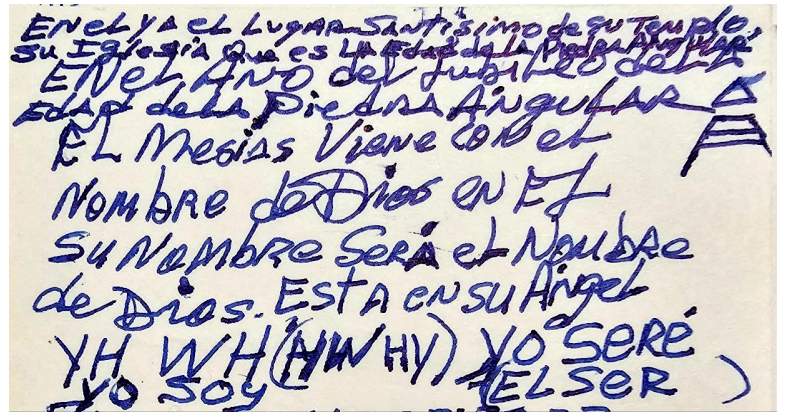 EN EL Y A el LugAR SANtísimo de su Templo,
su Iglesia Que es LA Edad de LA Piedra ANgulAR.
EN el Año del Jubileo de LA
EdAd de LA Piedra ANgulAR
EL Mesías Viene CON el
NOMbRe de Dios EN EL
Su NOMbRe SeRá el NOMbRe
de Dios. EstA en su Ángel
YHWH (HWHY) YO SERÉ
YO SOY (EL SER)